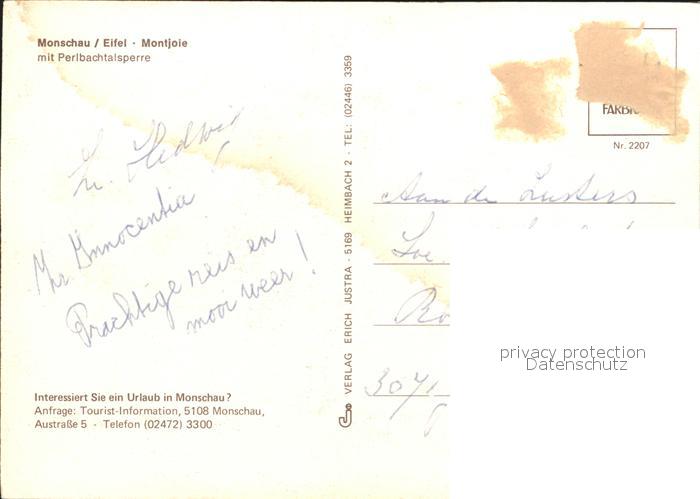 Monschau / Eifel · Montjoie
mit Perlbachtalsperre
Zr. Hedwig
Innocentia!
Prachtige reis en
mooi weer!
Interessiert Sie ein Urlaub in Monschau?
Anfrage: Tourist-Information, 5108 Monschau,
Austraße 5 - Telefon (02472) 3300
VERLAG ERICH JUSTRA · 5169 HEIMBACH 2 · TEL: (02446) 3359
Nr. 2207
Aan de Zusters
3071
privacy protection
Datenschutz